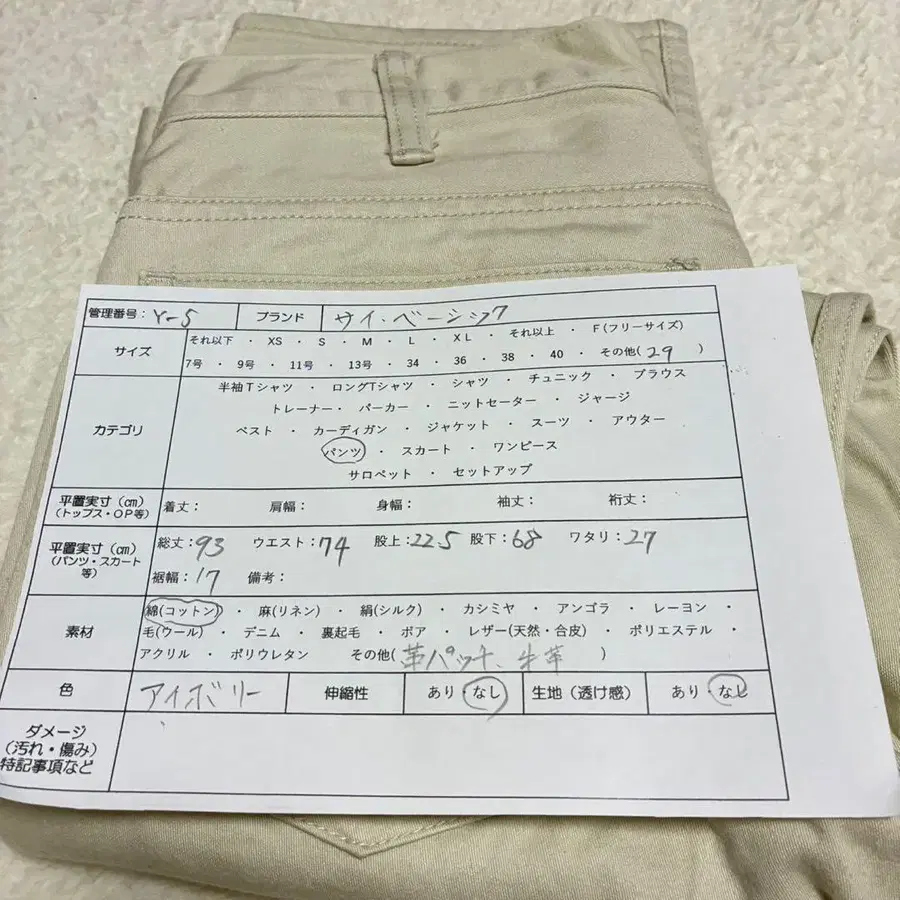 管理番号：Y-5 ブランド サイ・ベーシック
サイズ それ以下 ・ XS ・ S ・ M ・ L ・ XL ・ それ以上 ・ F(フリーサイズ)
7号 ・ 9号 ・ 11号 ・ 13号 ・ 34 ・ 36 ・ 38 ・ 40 ・ その他( 29 )
カテゴリ 半袖Tシャツ ・ ロングTシャツ ・ シャツ ・ チュニック ・ ブラウス
トレーナー・ パーカー ・ ニットセーター ・ ジャージ
ベスト ・ カーディガン ・ ジャケット ・ スーツ ・ アウター
パンツ ・ スカート ・ ワンピース
サロペット ・ セットアップ
平置実寸（㎝）
(トップス・OP等) 着丈： 肩幅： 身幅： 袖丈： 裄丈：
平置実寸（㎝）
(パンツ・スカート
等)
総丈：93 ウエスト：74 股上：22.5 股下：68 ワタリ：27
裾幅：17 備考：
素材 綿(コットン) ・ 麻(リネン) ・ 絹(シルク) ・ カシミヤ ・ アンゴラ ・ レーヨン ・
毛(ウール) ・ デニム ・ 裏起毛 ・ ボア ・ レザー(天然・合皮) ・ ポリエステル ・
アクリル ・ ポリウレタン その他( 革パッチ、牛革 )
色 アイボリー 伸縮性 あり・なし 生地（透け感） あり・なし
ダメージ
（汚れ・傷み）
特記事項など